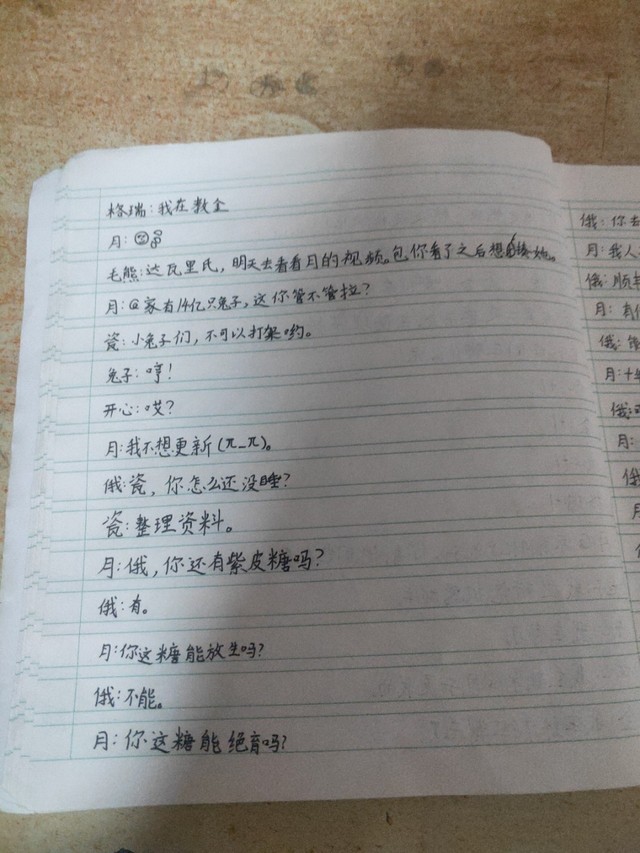 格瑞：我在数金
月：
毛熊：达瓦里氏，明天去看看月的视频。包你看了之后想揍她。
月：@家有14亿只兔子，这你管不管拉？
瓷：小兔子们，不可以打架哟。
兔子：哼！
开心：哎？
月：我不想更新（π_π）。
俄：瓷，你怎么还没睡？
瓷：整理资料。
月：俄，你还有紫皮糖吗？
俄：有。
月：你这糖能放生吗？
俄：不能。
月：你这糖能绝育吗？
俄：你去
月：我人
俄：顺
月：有
俄：
月：
俄：
月：
俄
月